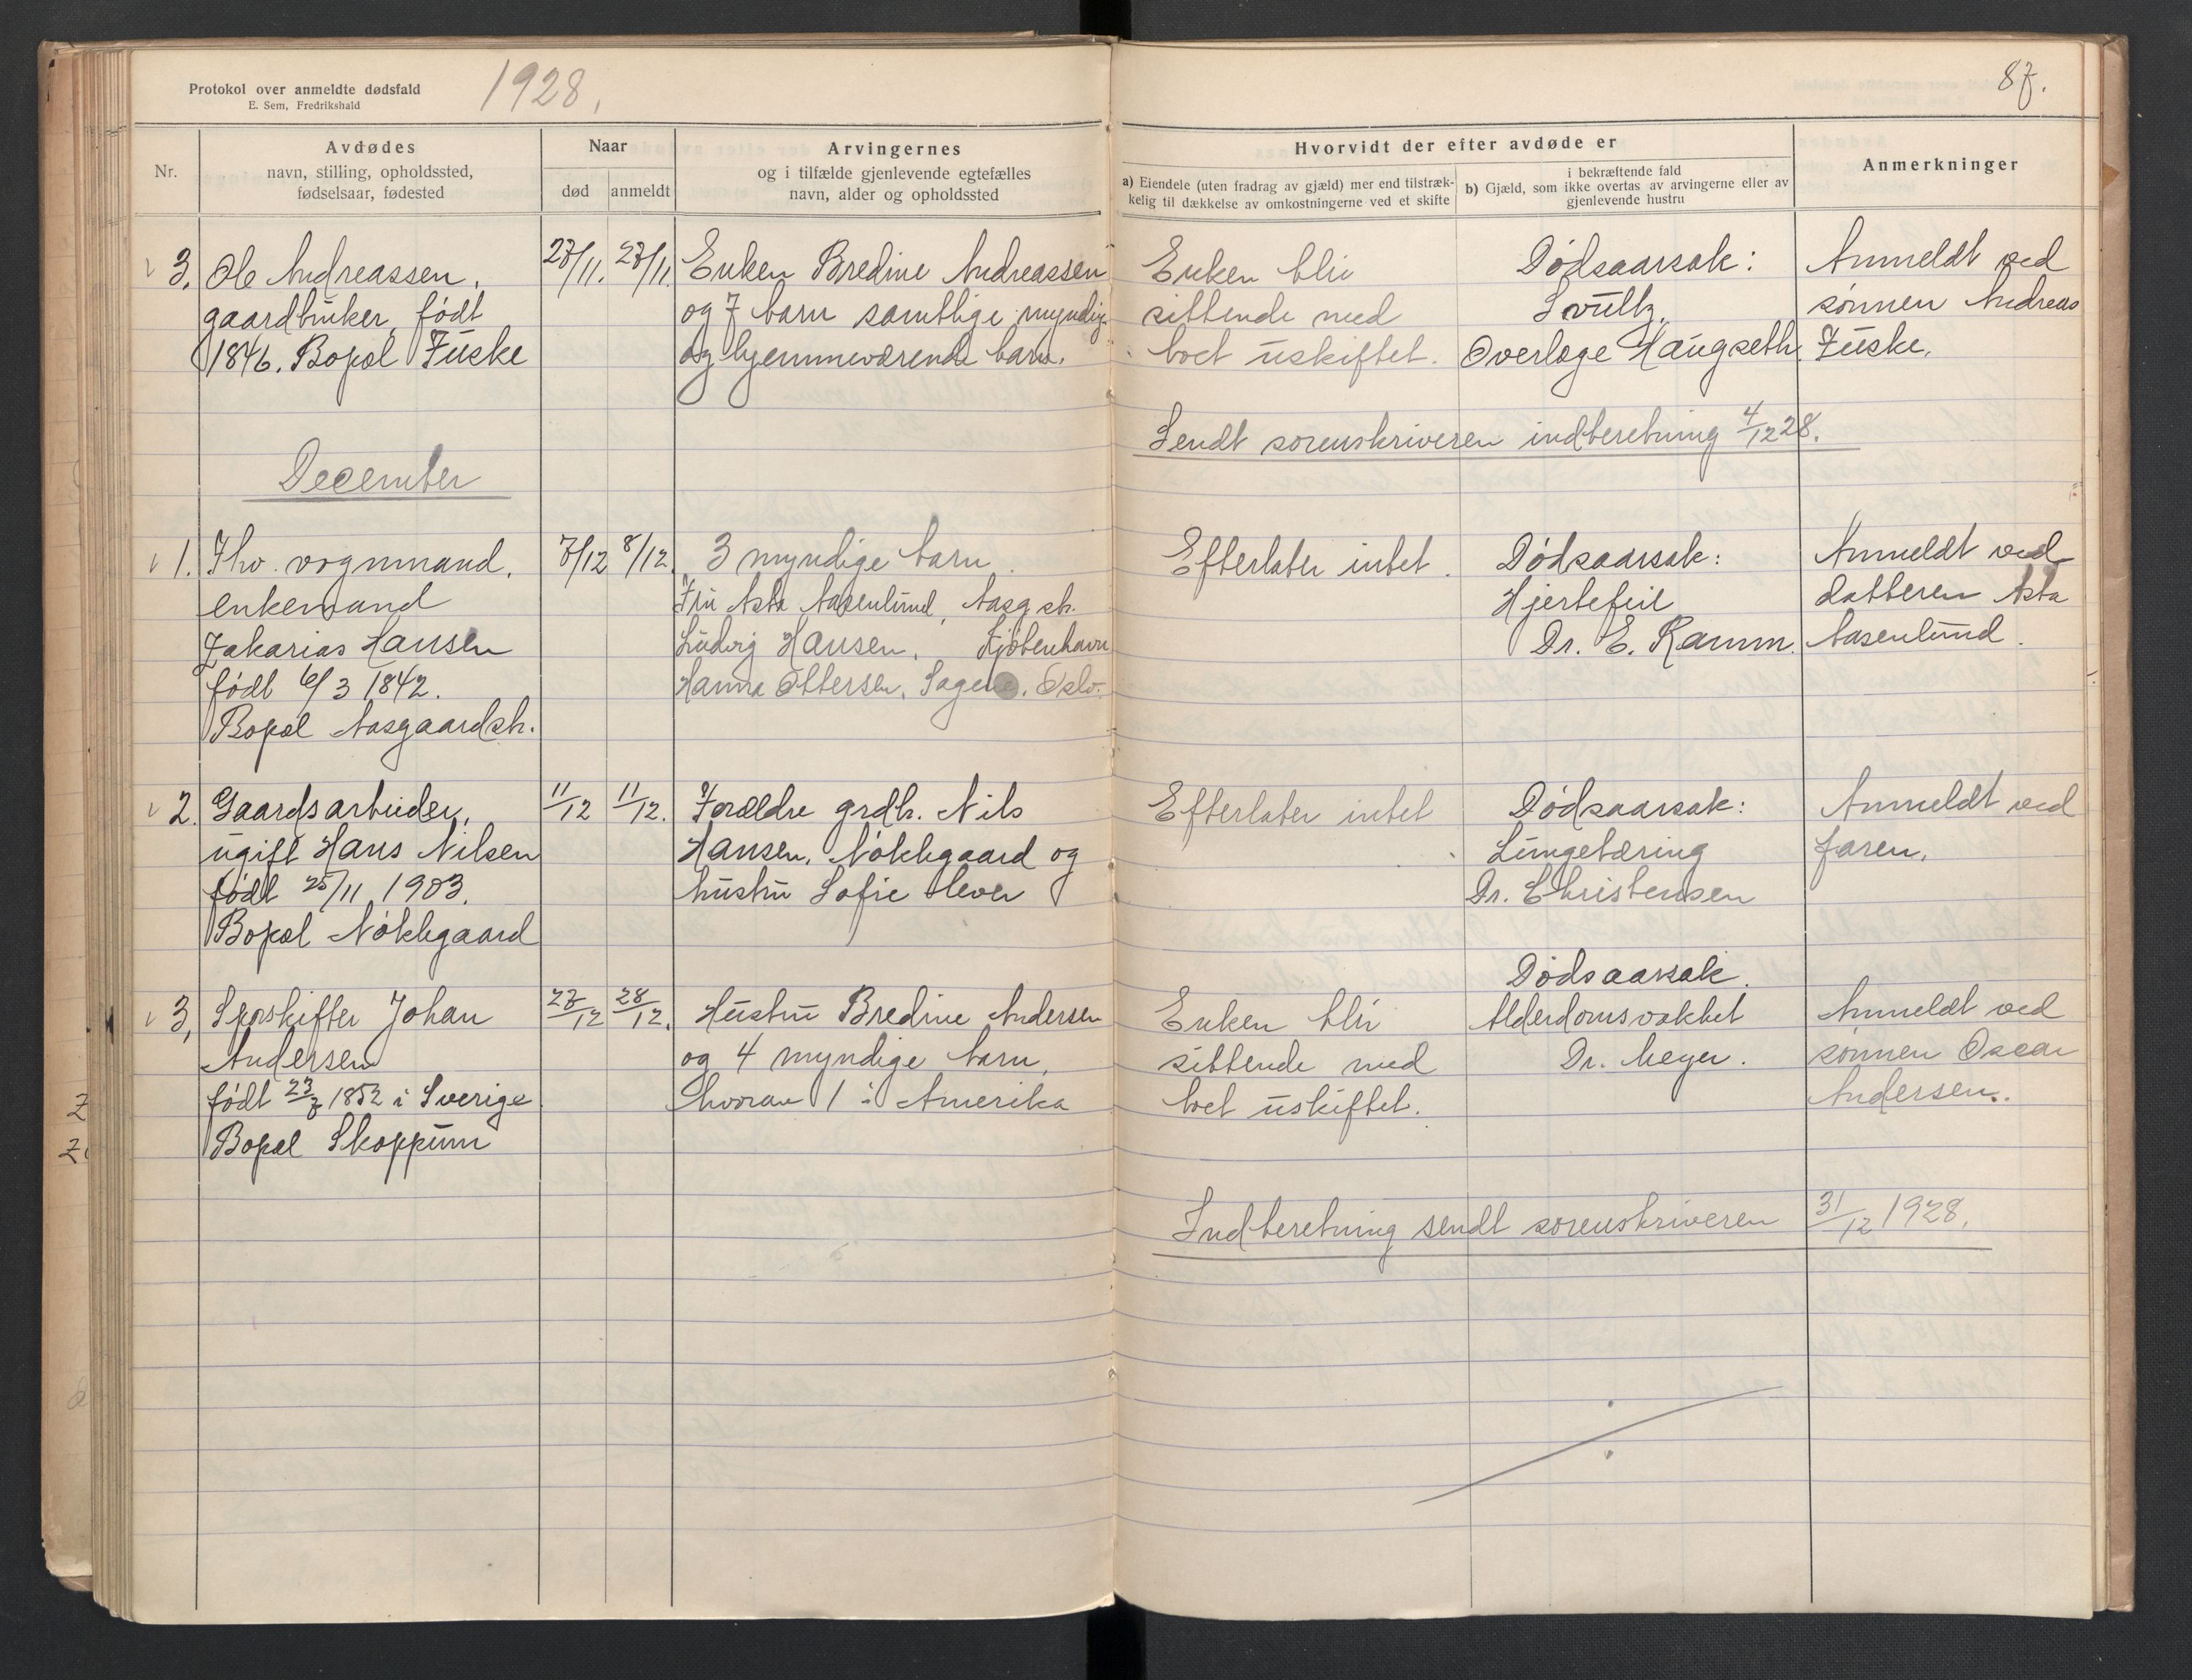 Protokol over anmeldte dødsfald
E. Sem, Fredrikshald
1928.
87.
Nr.
Avdødes
navn, stilling, opholdssted,
fødselsaar, fødested
Naar
død
anmeldt
Arvingernes
og i tilfælde gjenlevende egtefælles
navn, alder og opholdssted
Hvorvidt der efter avdøde er
a) Eiendele (uten fradrag av gjæld) mer end tilstræk-
kelig til dækkelse av omkostningerne ved et skifte
i bekræftende fald
b) Gjæld, som ikke overtas av arvingerne eller av
gjenlevende hustru
Anmerkninger
3. Ole Andreassen,
gaardbruker, født
1846. Bopæl Fuske
27/11. 27/11.
Enken Bredine Andreassen
og 7 barn samtlige myndig
og hjemmeværende barn.
Enken bliv
sittende med
boet uskiftet.
Dødsaarsak:
Svultz.
Overlæge Haugseth.
Anmeldt ved
sønnen Andreas
Fuske.
Sendt sorenskriveren indberetning 4/12 28.
December
1. Fhv. vognmand,
enkemand
Zakarias Hansen
født 6/3 1842.
Bopæl Aasgaardstr.
7/12 8/12.
3 myndige barn.
Fru Asta Aasenlund, Aasg.str.
Ludvig Hansen, Kjøbenhavn
Hanna Ottersen, Sagene, Oslo.
Efterlater intet.
Dødsaarsak:
Hjertefeil
Dr. E. Ramm.
Anmeldt ved
datteren Asta
Aasenlund.
2. Gaardsarbeider,
ugift Hans Nilsen
født 25/11 1903.
Bopæl Nøklegaard
11/12 11/12.
Forældre grdb. Nils
Hansen, Nøklegaard og
hustru Sofie lever
Efterlater intet
Dødsaarsak:
Lungetæring
Dr. Christensen
Anmeldt ved
faren.
3. Sporskifter Johan
Andersen
født 23/7 1852 i Sverige
Bopæl Skoppum
27/12 28/12.
Hustru Bredine Andersen
og 4 myndige barn,
hvorav 1 i Amerika
Enken bliv
sittende med
boet uskiftet.
Dødsaarsak.
Alderdomsvakhet
Dr. Meyer.
Anmeldt ved
sønnen Oscar
Andersen.
Indberetning sendt sorenskriveren 31/12 1928.